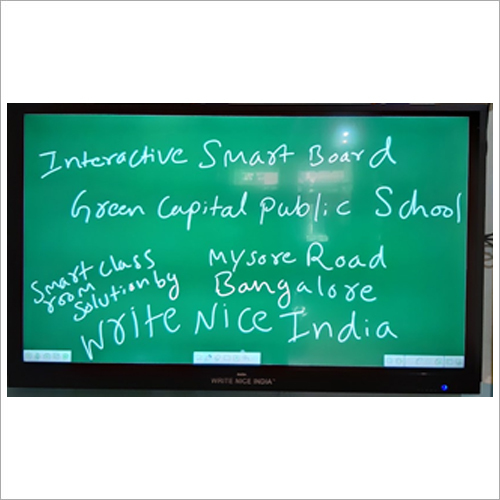 Interactive Smart Board
Green Capital Public School
Mysore Road
Bangalore
Smart Class
room
Solution by
Write Nice India
WRITE NICE INDIA